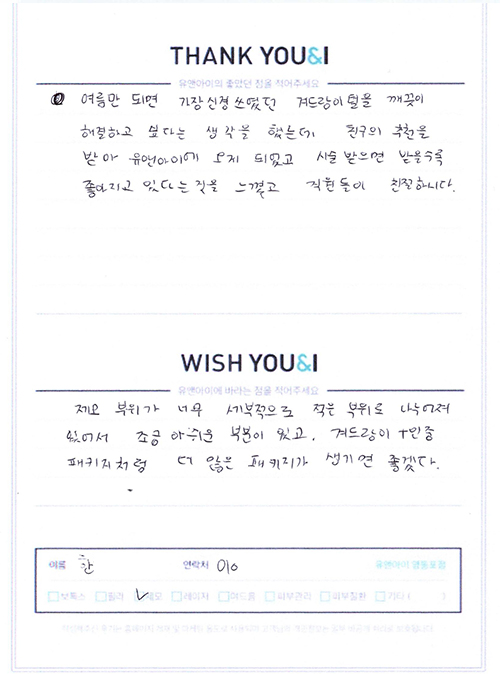 THANK YOU&I
유앤아이의 좋았던 점을 적어주세요
여름만 되면 가장 신경 쓰였던 겨드랑이 털을 깨끗이
해결하고 싶다는 생각을 했는데 친구의 추천을
받아 유앤아이에 오게 되었고 시술 받으면 받을수록
좋아지고 있다는 것을 느꼈고 직원들이 친절하시다.
WISH YOU&I
유앤아이에 바라는 점을 적어주세요
제모 부위가 너무 세부적으로 적은 부위로 나누어져
있어서 조금 아쉬운 부분이 있고, 겨드랑이+인중
패키지처럼 더 많은 패키지가 생기면 좋겠다.
이름 한 연락처 010 유앤아이 영등포점
보톡스 필러 제모 레이저 여드름 피부관리 피부질환 기타 ( )